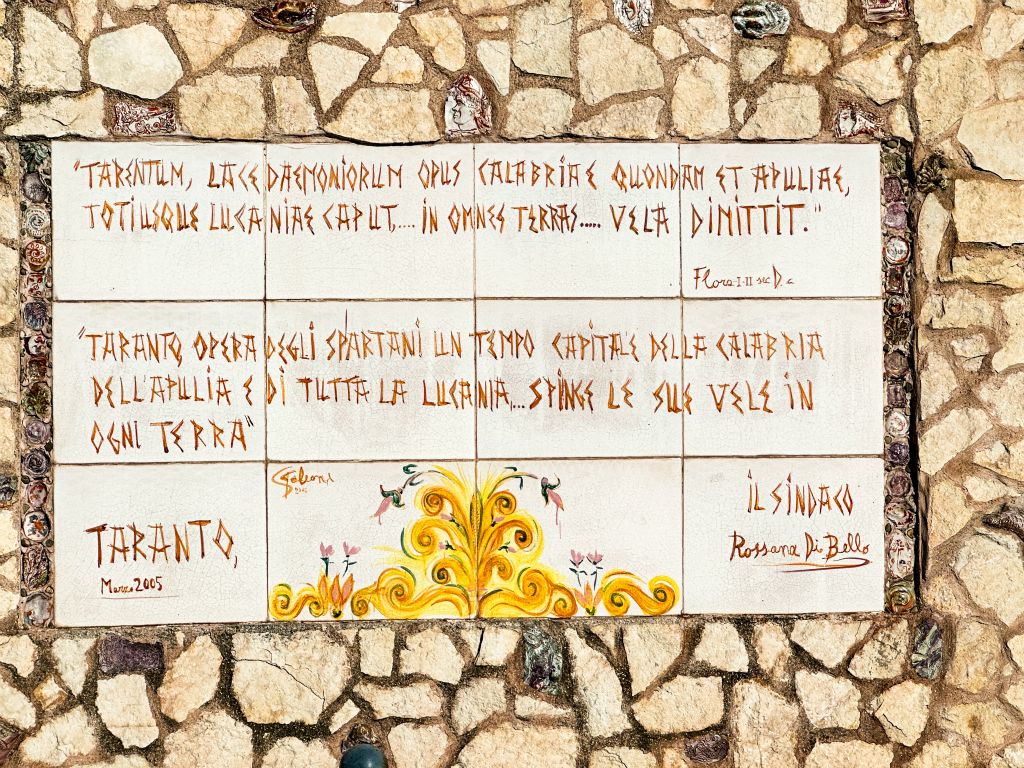 "TARENTUM, LACEDAEMONIORUM OPUS CALABRIAE QUONDAM ET APULIAE,
TOTIUSQUE LUCANIAE CAPUT.... IN OMNES TERRAS..... VELA DIMITTIT."
Floro I-II sec D. c
"TARANTO, OPERA DEGLI SPARTANI UN TEMPO CAPITALE DELLA CALABRIA
DELL'APULIA E DI TUTTA LA LUCANIA... SPINGE LE SUE VELE IN
OGNI TERRA"
IL SINDACO
Rossana Di Bello
TARANTO,
Marzo 2005